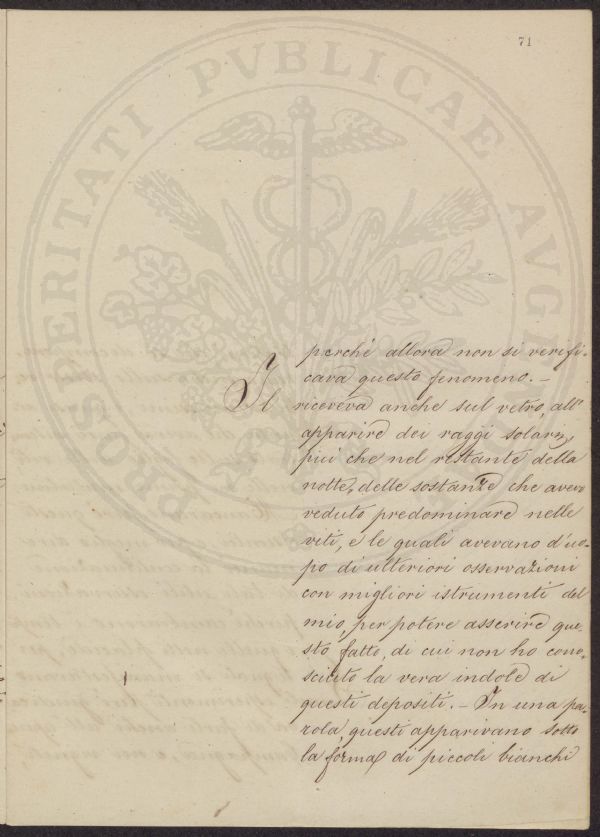 71
PROSPERITATI PVBLICAE AVGENDAE
perché allora non si verifi-
cava questo fenomeno. -
Il riceveva anche sul vetro, all'
apparire dei raggi solari,
più che nel restante della
notte, delle sostanze che avevo
veduto predominare nelle
viti, e le quali avevano d'uo-
po di ulteriori osservazioni
con migliori istrumenti del
mio, per potere asserire que-
sto fatto, di cui non ho cono-
sciuto la vera indole di
questi depositi. - In una pa-
rola, questi apparivano sotto
la forma di piccoli bianchi